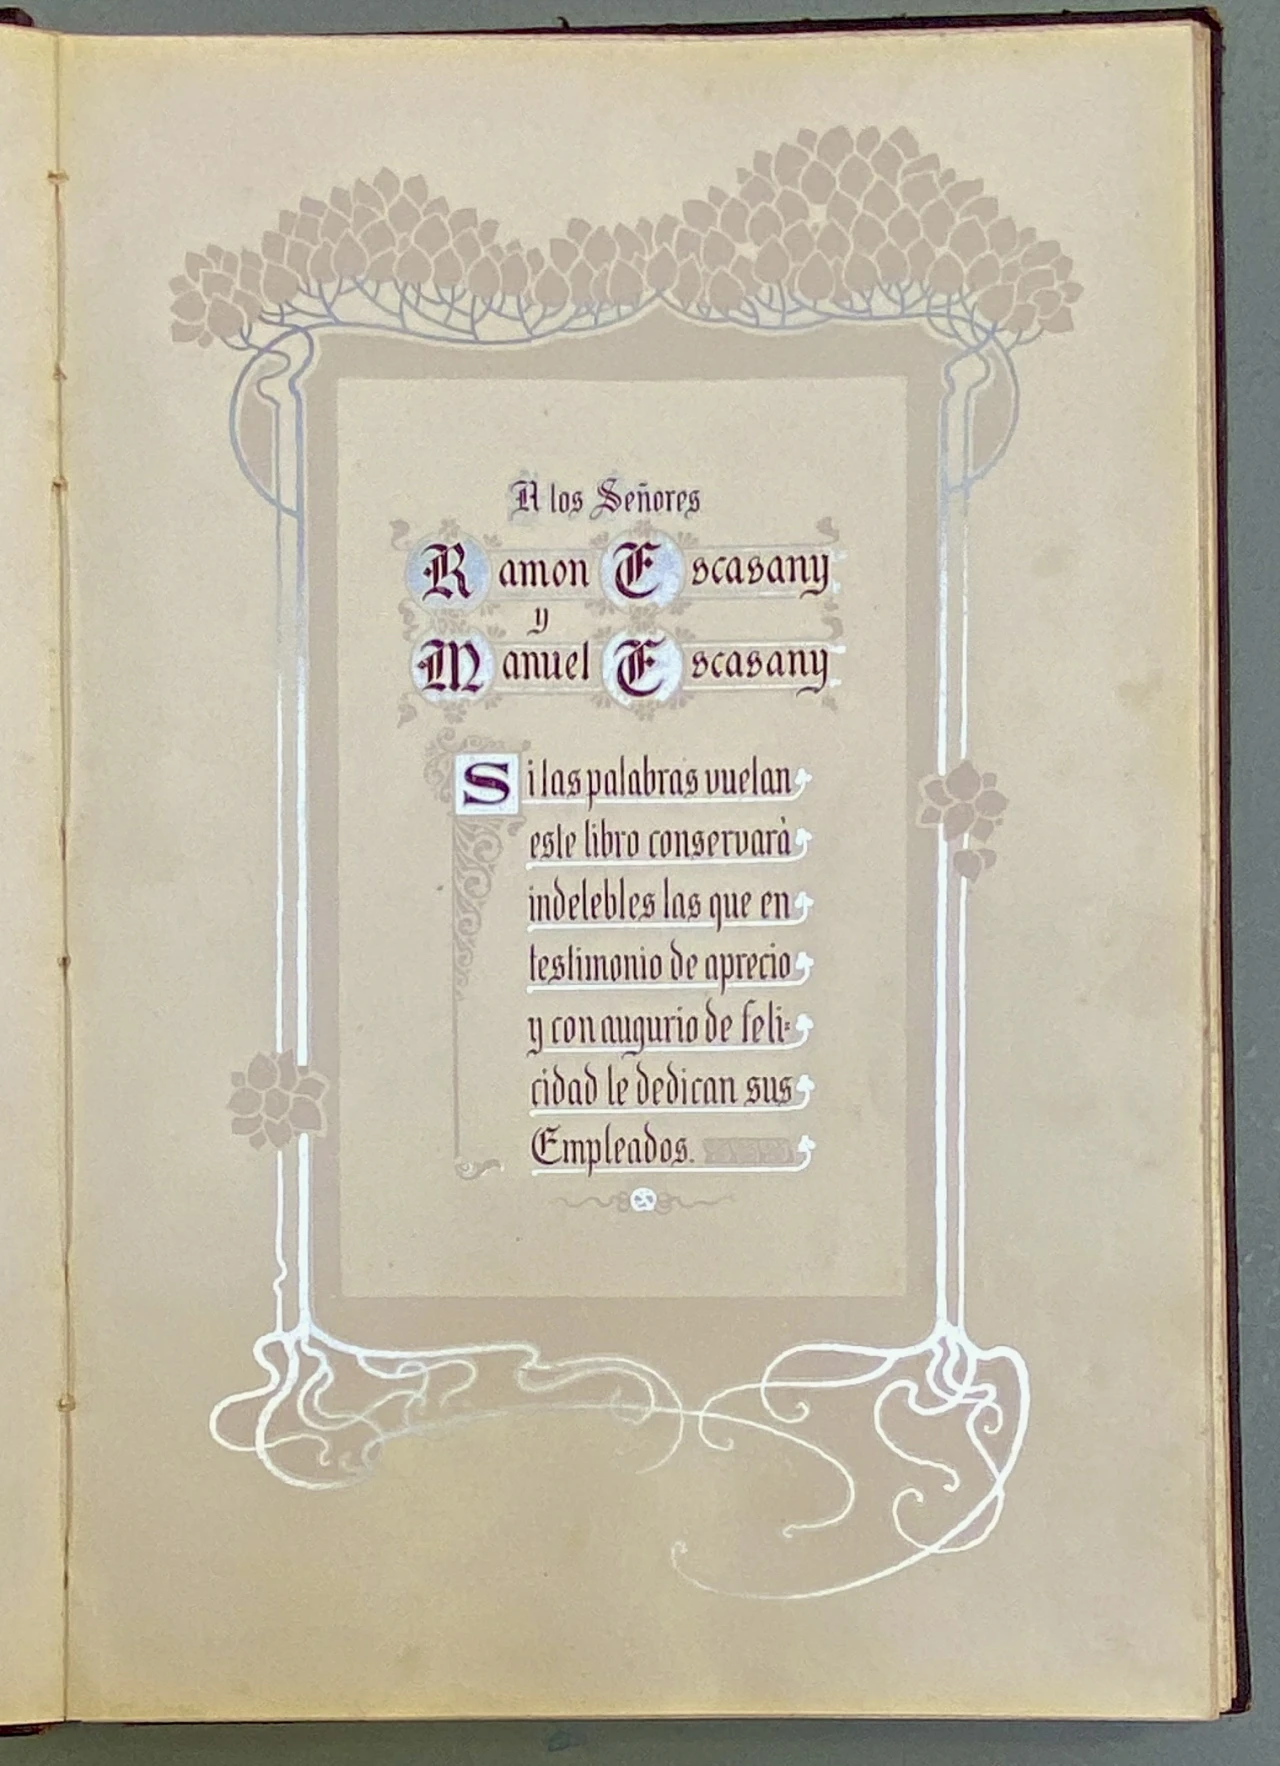 A los Señores
Ramon Escasany
y
Manuel Escasany
Si las palabras vuelan
este libro conservarà
indelebles las que en
testimonio de aprecio
y con augurio de feli=
cidad le dedican sus
Empleados.